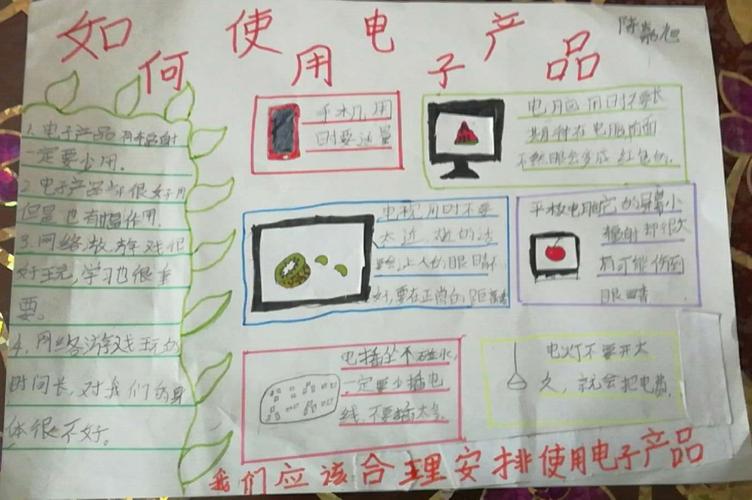 如何使用电子产品
1.电子产品有辐射
一定要少用。
2.电子产品都很好用
但是也有副作用。
3.网络
游戏很
好玩,学习也很重
要。
4.网络游戏玩的
时间长,对我们的身
体很不好。
手机用
时要适量
电脑用时不要长
期待在电脑前面
不然眼会变成红色的。
电视用时不要
太近
人的眼睛不
好,要在正常的距离看
平板电脑它的屏幕小
辐射却很大
有可能伤到
眼睛
电插坐不碰水,
一定要少插电
线,不要插太多
电灯不要开太
久,就会把电费
我们应该合理安排使用电子产品